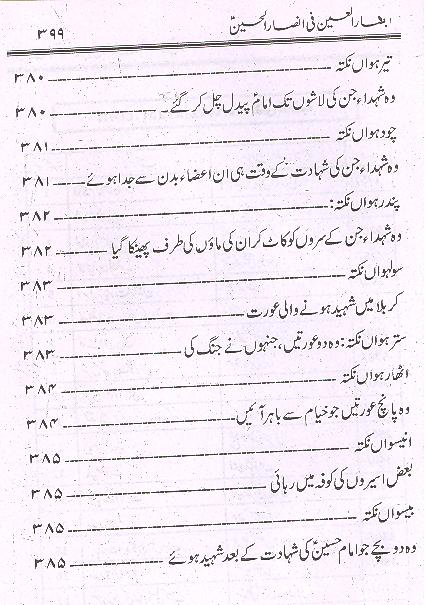 ابصار العین فی انصار الحسینؑ ۳۹۹
تیرہواں نکتہ ۳۸۰
وہ شہداء جن کی لاشوں تک امامؑ پیدل چل کر گئے۔ ۳۸۰
چودہواں نکتہ ۳۸۱
وہ شہداء جن کی شہادت کے وقت ہی ان اعضاء بدن سے جدا ہوئے ۳۸۱
پندرہواں نکتہ: ۳۸۲
وہ شہداء جن کے سروں کو کاٹ کر ان کی ماؤں کی طرف پھینکا گیا ۳۸۲
سولہواں نکتہ ۳۸۳
کربلا میں شہید ہونے والی عورت ۳۸۳
سترہواں نکتہ: وہ دو عورتیں، جنہوں نے جنگ کی ۳۸۳
اٹھارہواں نکتہ ۳۸۴
وہ پانچ عورتیں جو خیام سے باہر آئیں ۳۸۴
انیسواں نکتہ ۳۸۵
بعض اسیروں کی کوفہ میں رہائی ۳۸۵
بیسواں نکتہ ۳۸۵
وہ دو بچے جو امام حسینؑ کی شہادت کے بعد شہید ہوئے ۳۸۵